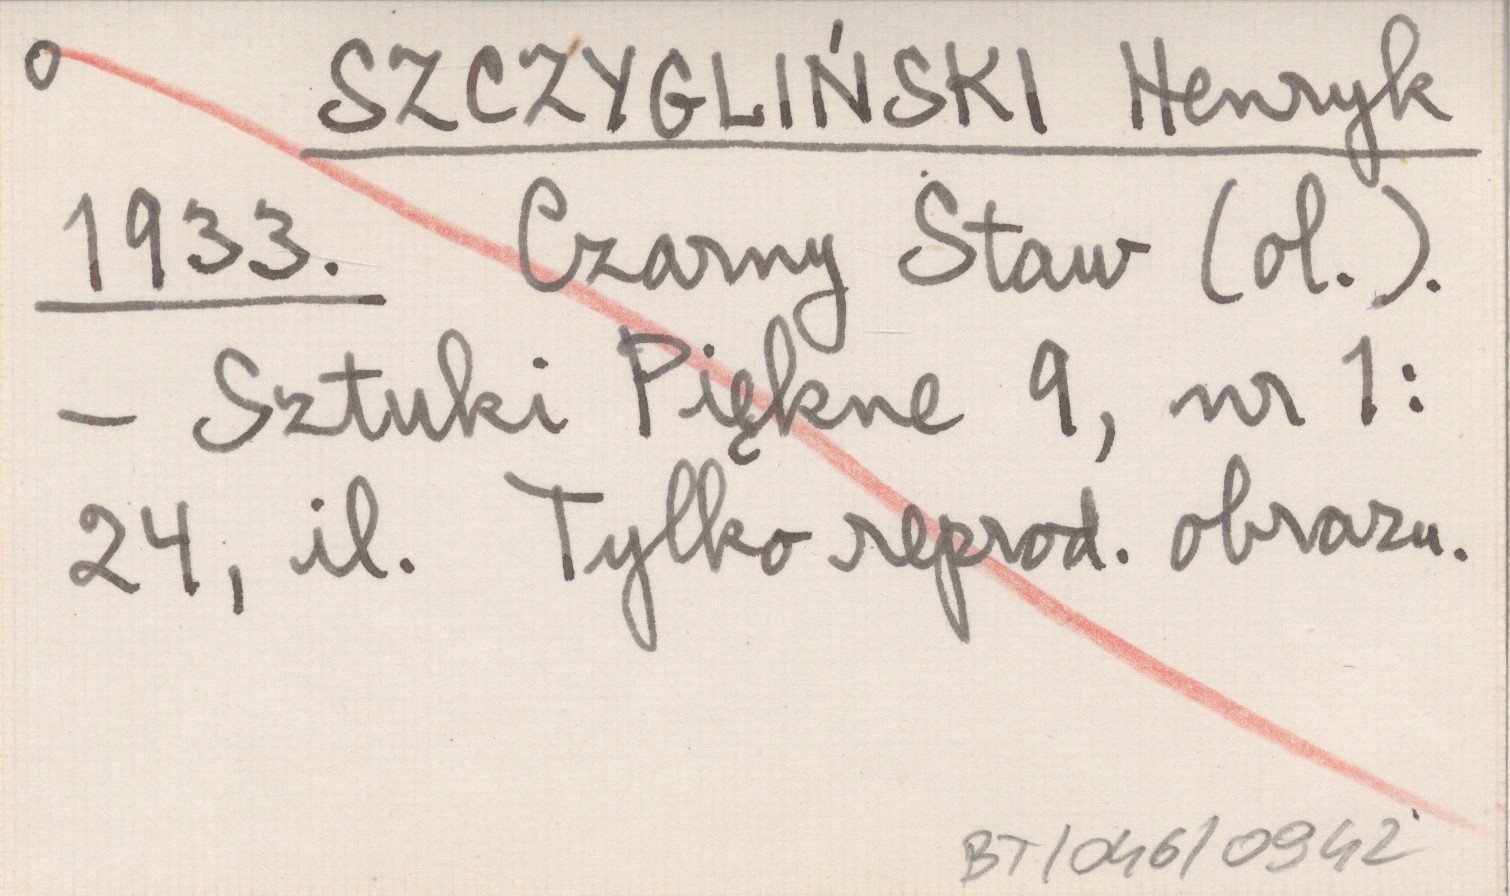 o SZCZYGLIŃSKI Henryk
1933. Czarny Staw (ol.).
– Sztuki Piękne 9, nr 1:
24, il. Tylko reprod. obrazu.
BT/046/0942